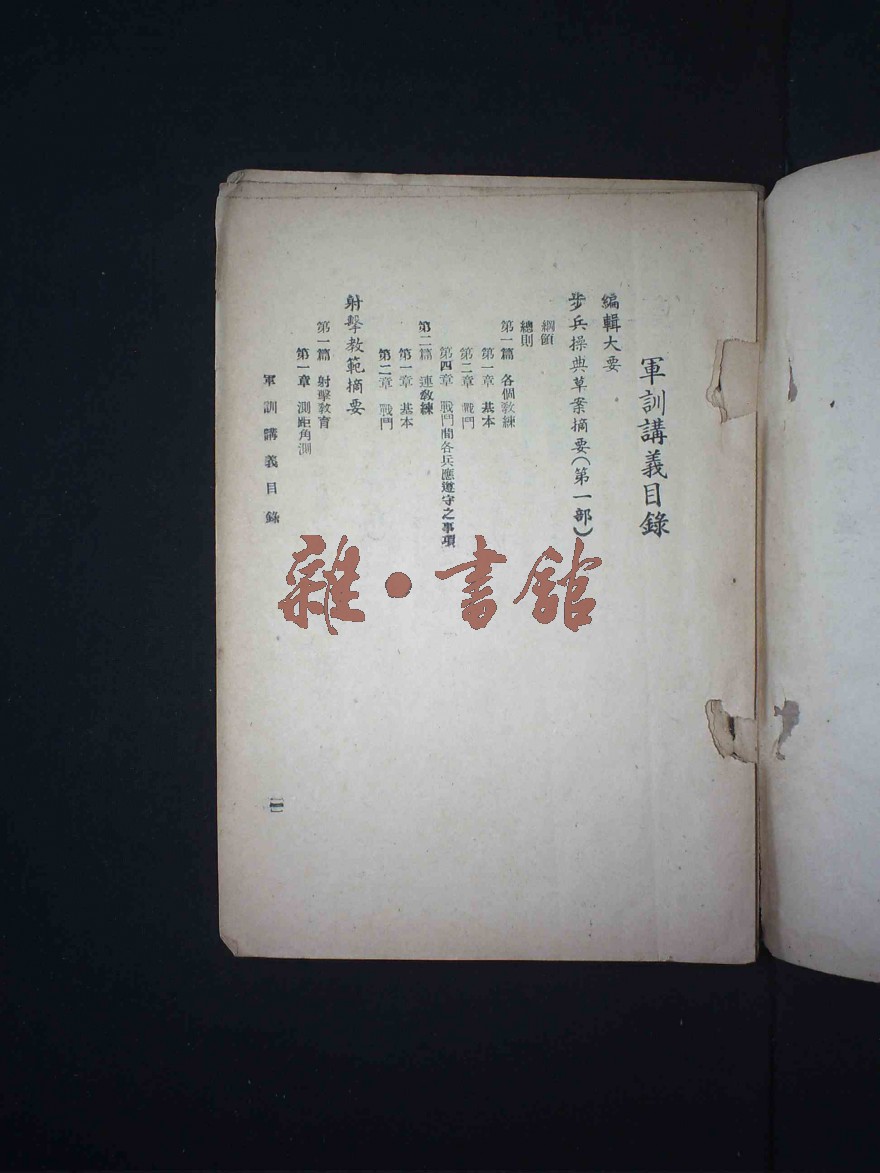 軍訓講義目錄
編輯大要
步兵操典草案摘要(第一部)
綱領
總則
第一篇 各個教練
第一章 基本
第二章 戰鬥
第四章 戰鬥間各兵應遵守之事項
第二篇 連教練
第一章 基本
第二章 戰鬥
射擊教範摘要
第一篇 射擊教育
第一章 測距角測
軍訓講義目錄
雜·書館